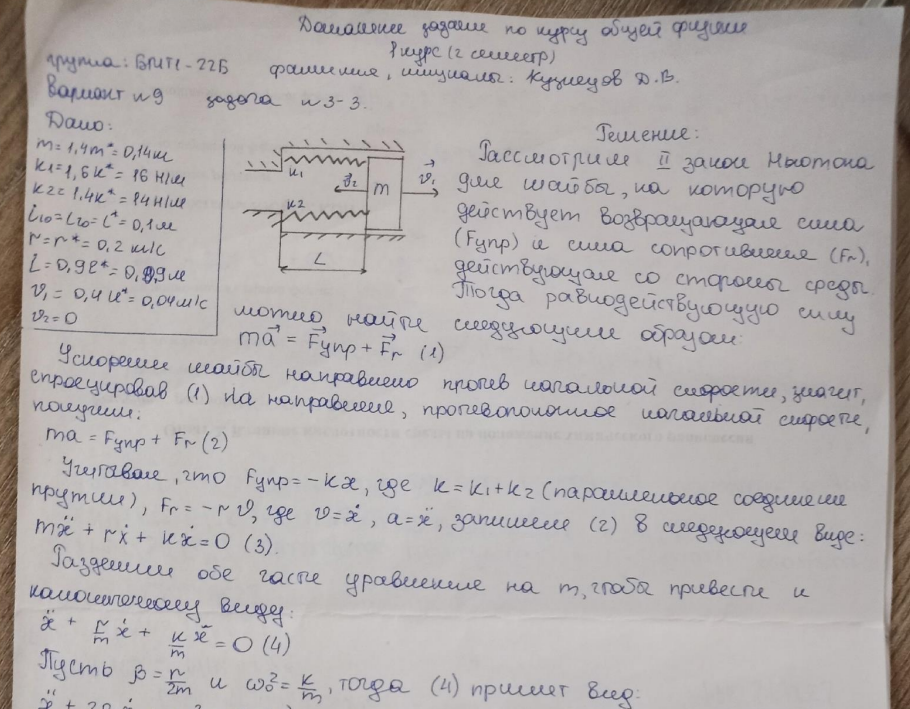 Домашнее задание по курсу общей физики
1 курс (2 семестр)
группа: БМТ1-22Б фамилия, инициалы: Кузнецов Д.В.
Вариант №9 задача №3-3.
Дано:
m=1,4m*=0,14кг
k1=1,6k*=16 Н/м
k2=1,4k*=14Н/м
L10=L20=L*=0,1м
r=r*=0,2 кг/с
L=0,9l*=0,09м
v1=0,4u*=0,04м/с
v2=0
k1
v2
m
v1
k2
L
Решение:
Рассмотрим II закон Ньютона
для шайбы, на которую
действует возвращающая сила
(Fупр) и сила сопротивления (Fr),
действующая со стороны среды.
Тогда равнодействующую силу
можно найти следующим образом:
ma = Fупр + Fr (1)
Ускорение шайбы направлено против начальной скорости, значит,
спроецировав (1) на направление, противоположное начальной скорости,
получим:
ma = Fупр + Fr (2)
Учитывая, что Fупр=-kx, где k=k1+k2 (параллельное соединение
пружин), Fr=-rv, где v=ẋ, a=ẍ, запишем (2) в следующем виде:
mẍ + rẋ + kẋ=0 (3).
Разделим обе части уравнения на m, чтобы привести к
каноническому виду:
ẍ + r/m ẋ + k/m ẍ = 0 (4)
Пусть β=r/2m и ω0²=k/m, тогда (4) примет вид: